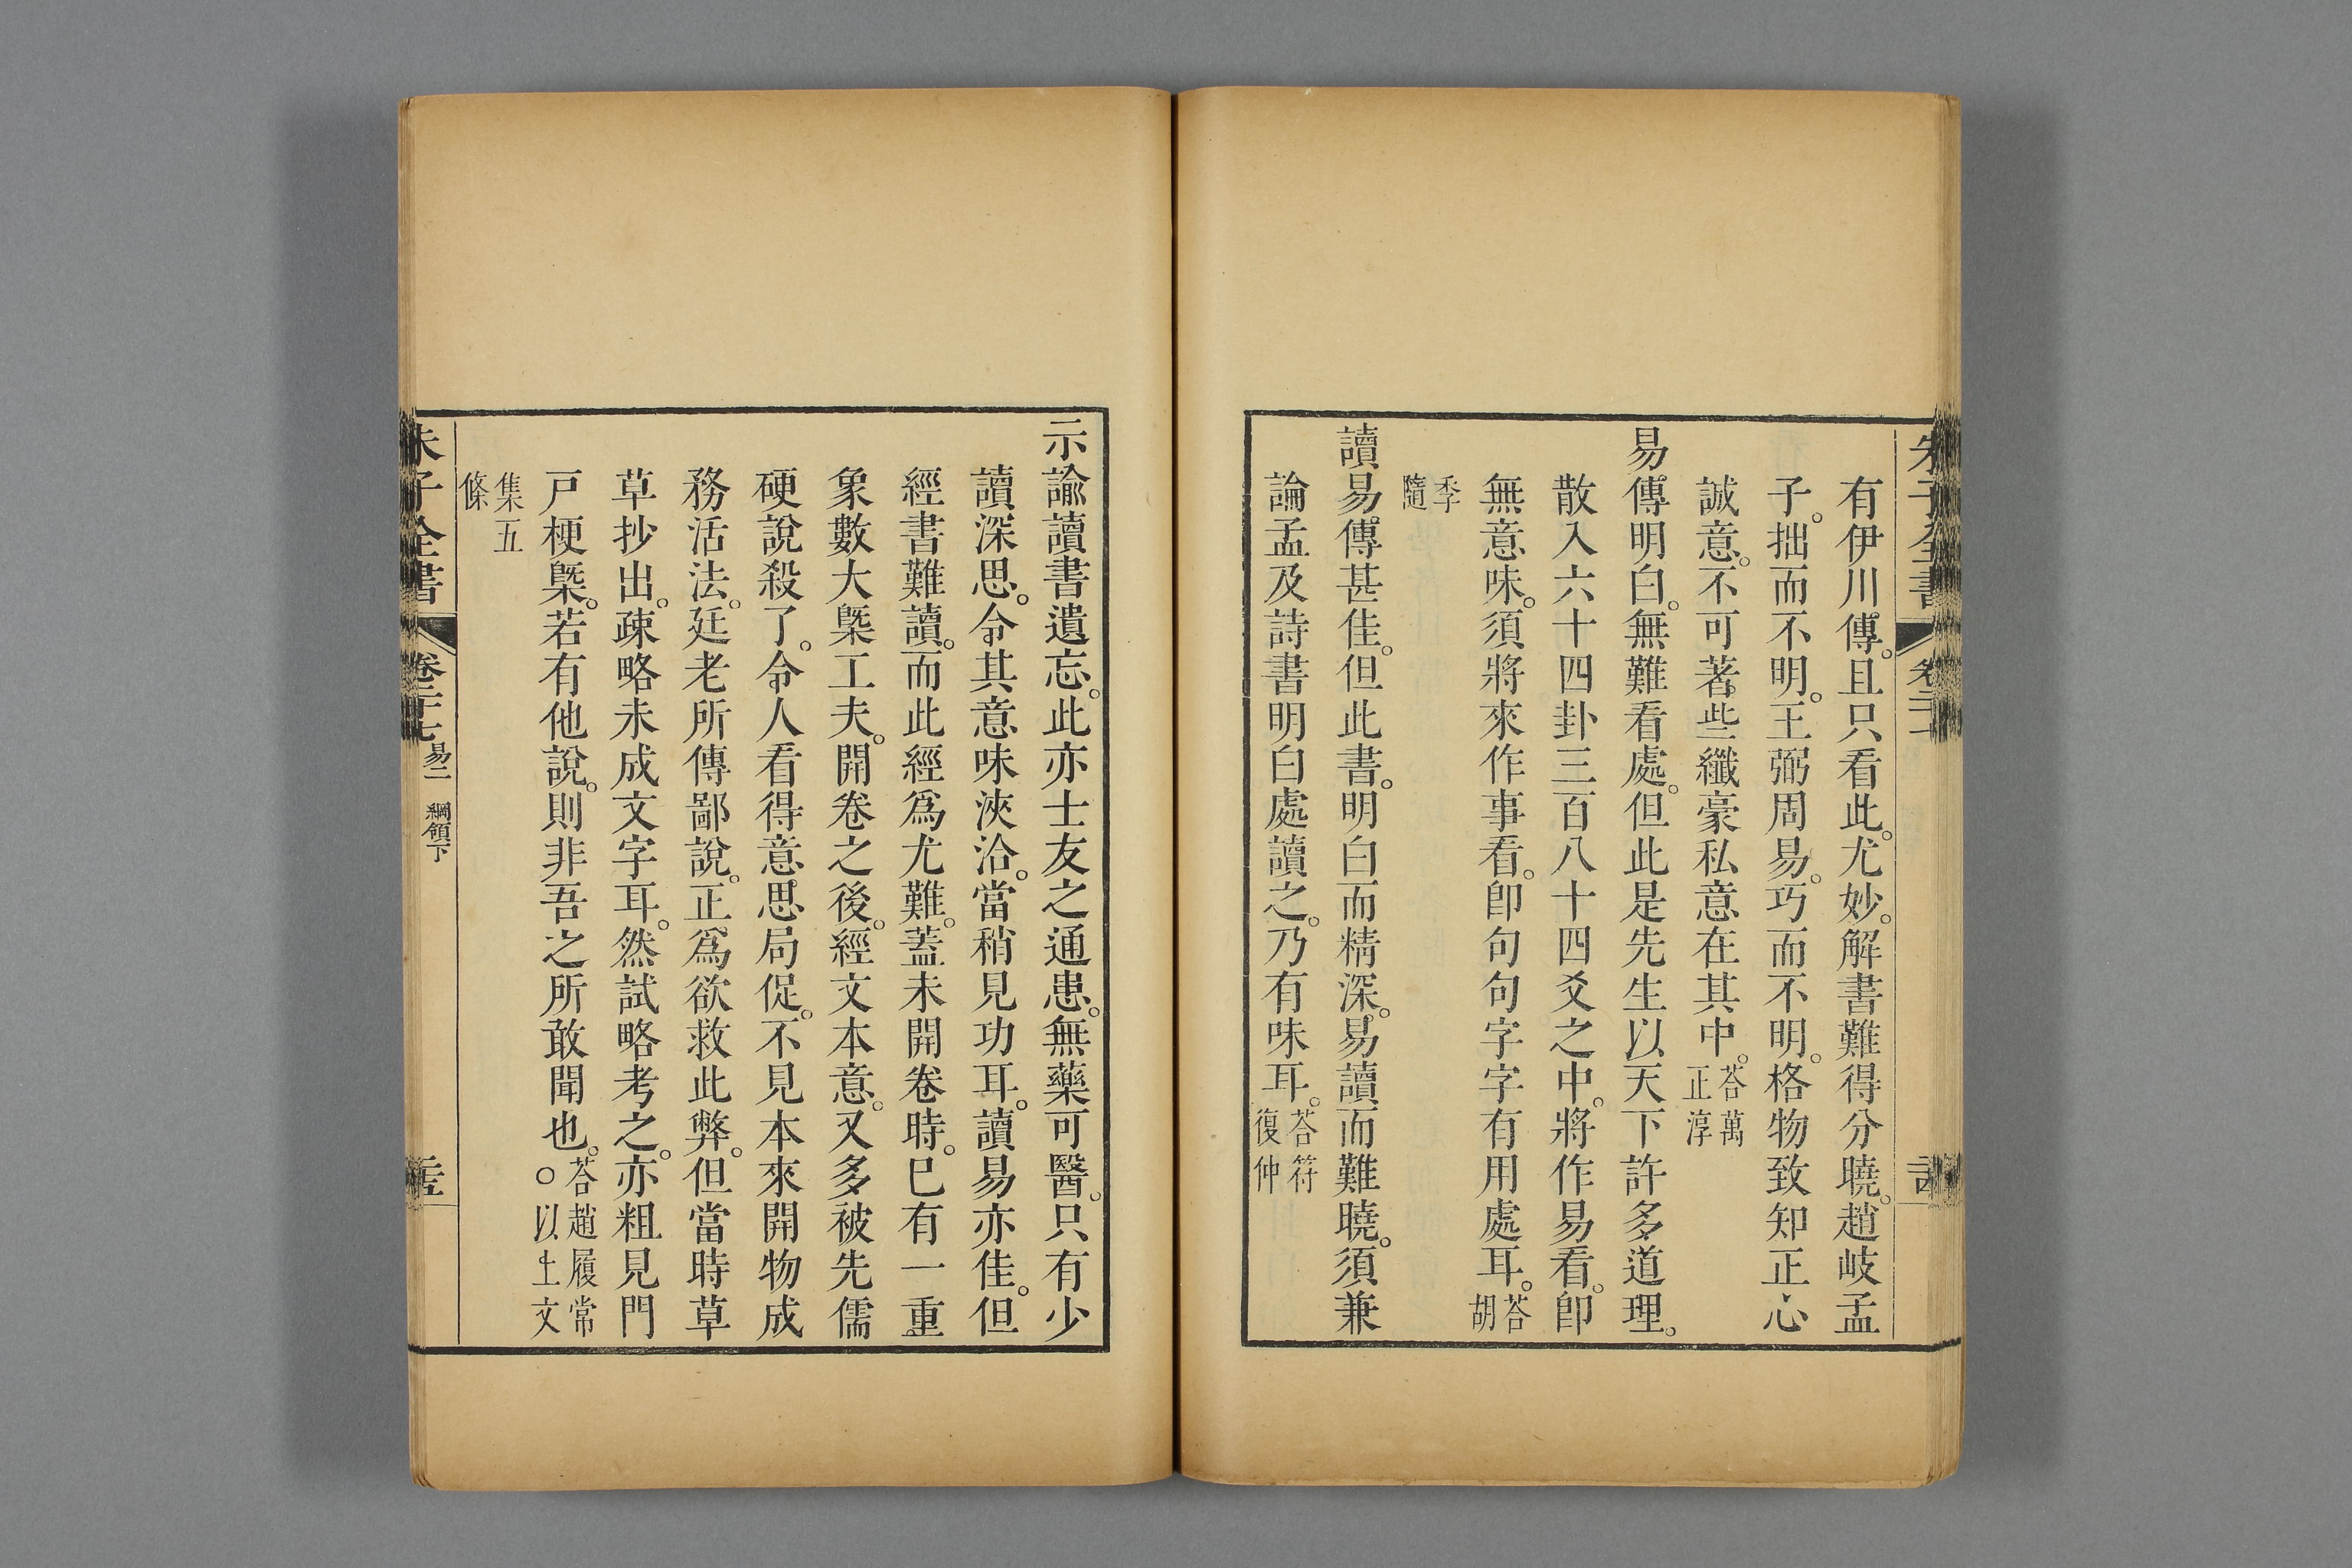 朱子全書
有伊川傳。且只看此。尤妙。解書難得分曉。趙岐孟
子。拙而不明。王弼周易。巧而不明。格物致知正心
誠意。不可著些纖豪私意在其中。荅萬正淳
易傳明白。無難看處。但此是先生以天下許多道理。
散入六十四卦三百八十四爻之中。將作易看。卽
無意味。須將來作事看。卽句句字字有用處耳。荅胡
季隨
讀易傳甚佳。但此書。明白而精深。易讀而難曉。須兼
論孟及詩書明白處讀之。乃有味耳。荅符復仲
示諭讀書遺忘。此亦士友之通患。無藥可醫。只有少
讀深思。令其意味浹洽。當稍見功耳。讀易亦佳。但
經書難讀。而此經爲尤難。蓋未開卷時。已有一重
象數大槩工夫。開卷之後。經文本意。又多被先儒
硬說殺了。令人看得意思局促。不見本來開物成
務活法。廷老所傳鄙說。正爲欲救此弊。但當時草
草抄出。疎略未成文字耳。然試略考之。亦粗見門
戸梗槩。若有他說。則非吾之所敢聞也。荅趙履常○以上文
集五條
朱子全書
卷二十七
易二 綱領下